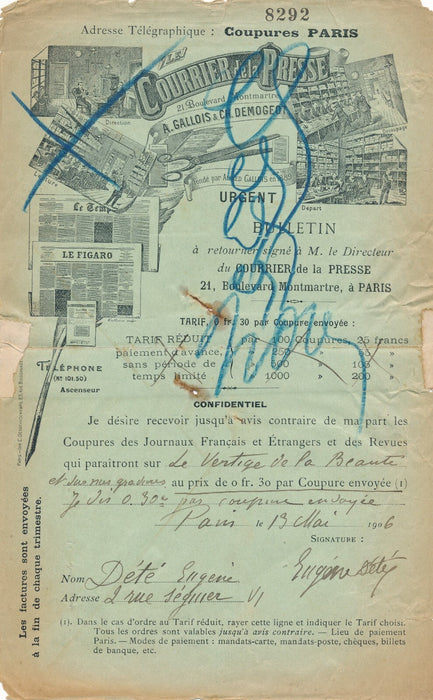 8292
Adresse Télégraphique : Coupures PARIS
LE
COURRIER de la PRESSE
21, Boulevard Montmartre
A. GALLOIS & CH. DEMOGEOT
Direction
Découpage
Lecture
Fondé par ALFRED GALLOIS en
Départ
URGENT
Le Temps
LE FIGARO
BULLETIN
à retourner signé à M. le Directeur
du COURRIER de la PRESSE
21, Boulevard Montmartre, à PARIS
TARIF, 0 fr. 30 par Coupure envoyée :
TARIF RÉDUIT par 100 Coupures, 25 francs
paiement d'avance, 250
sans période de 500
temps limité 1000 » 200 »
TÉLÉPHONE
(No 101.50)
Ascenseur
CONFIDENTIEL
Je désire recevoir jusqu'à avis contraire de ma part les
Coupures des Journaux Français et Étrangers et des Revues
qui paraîtront sur Le Vertige de la Beauté
et sur mes gravures au prix de 0 fr. 30 par Coupure envoyée (1)
Je dis 0.30c par coupure envoyée
Paris le 13 Mai 1906
SIGNATURE :
Eugène Dété
Nom Dété Eugène
Adresse 2 rue Séguier VI
Les factures sont envoyées
à la fin de chaque trimestre.
(1). Dans le cas d'ordre au Tarif réduit, rayer cette ligne et indiquer le Tarif choisi.
Tous les ordres sont valables jusqu'à avis contraire. — Lieu de paiement
Paris. — Modes de paiement : mandats-carte, mandats-poste, chèques, billets
de banque, etc.